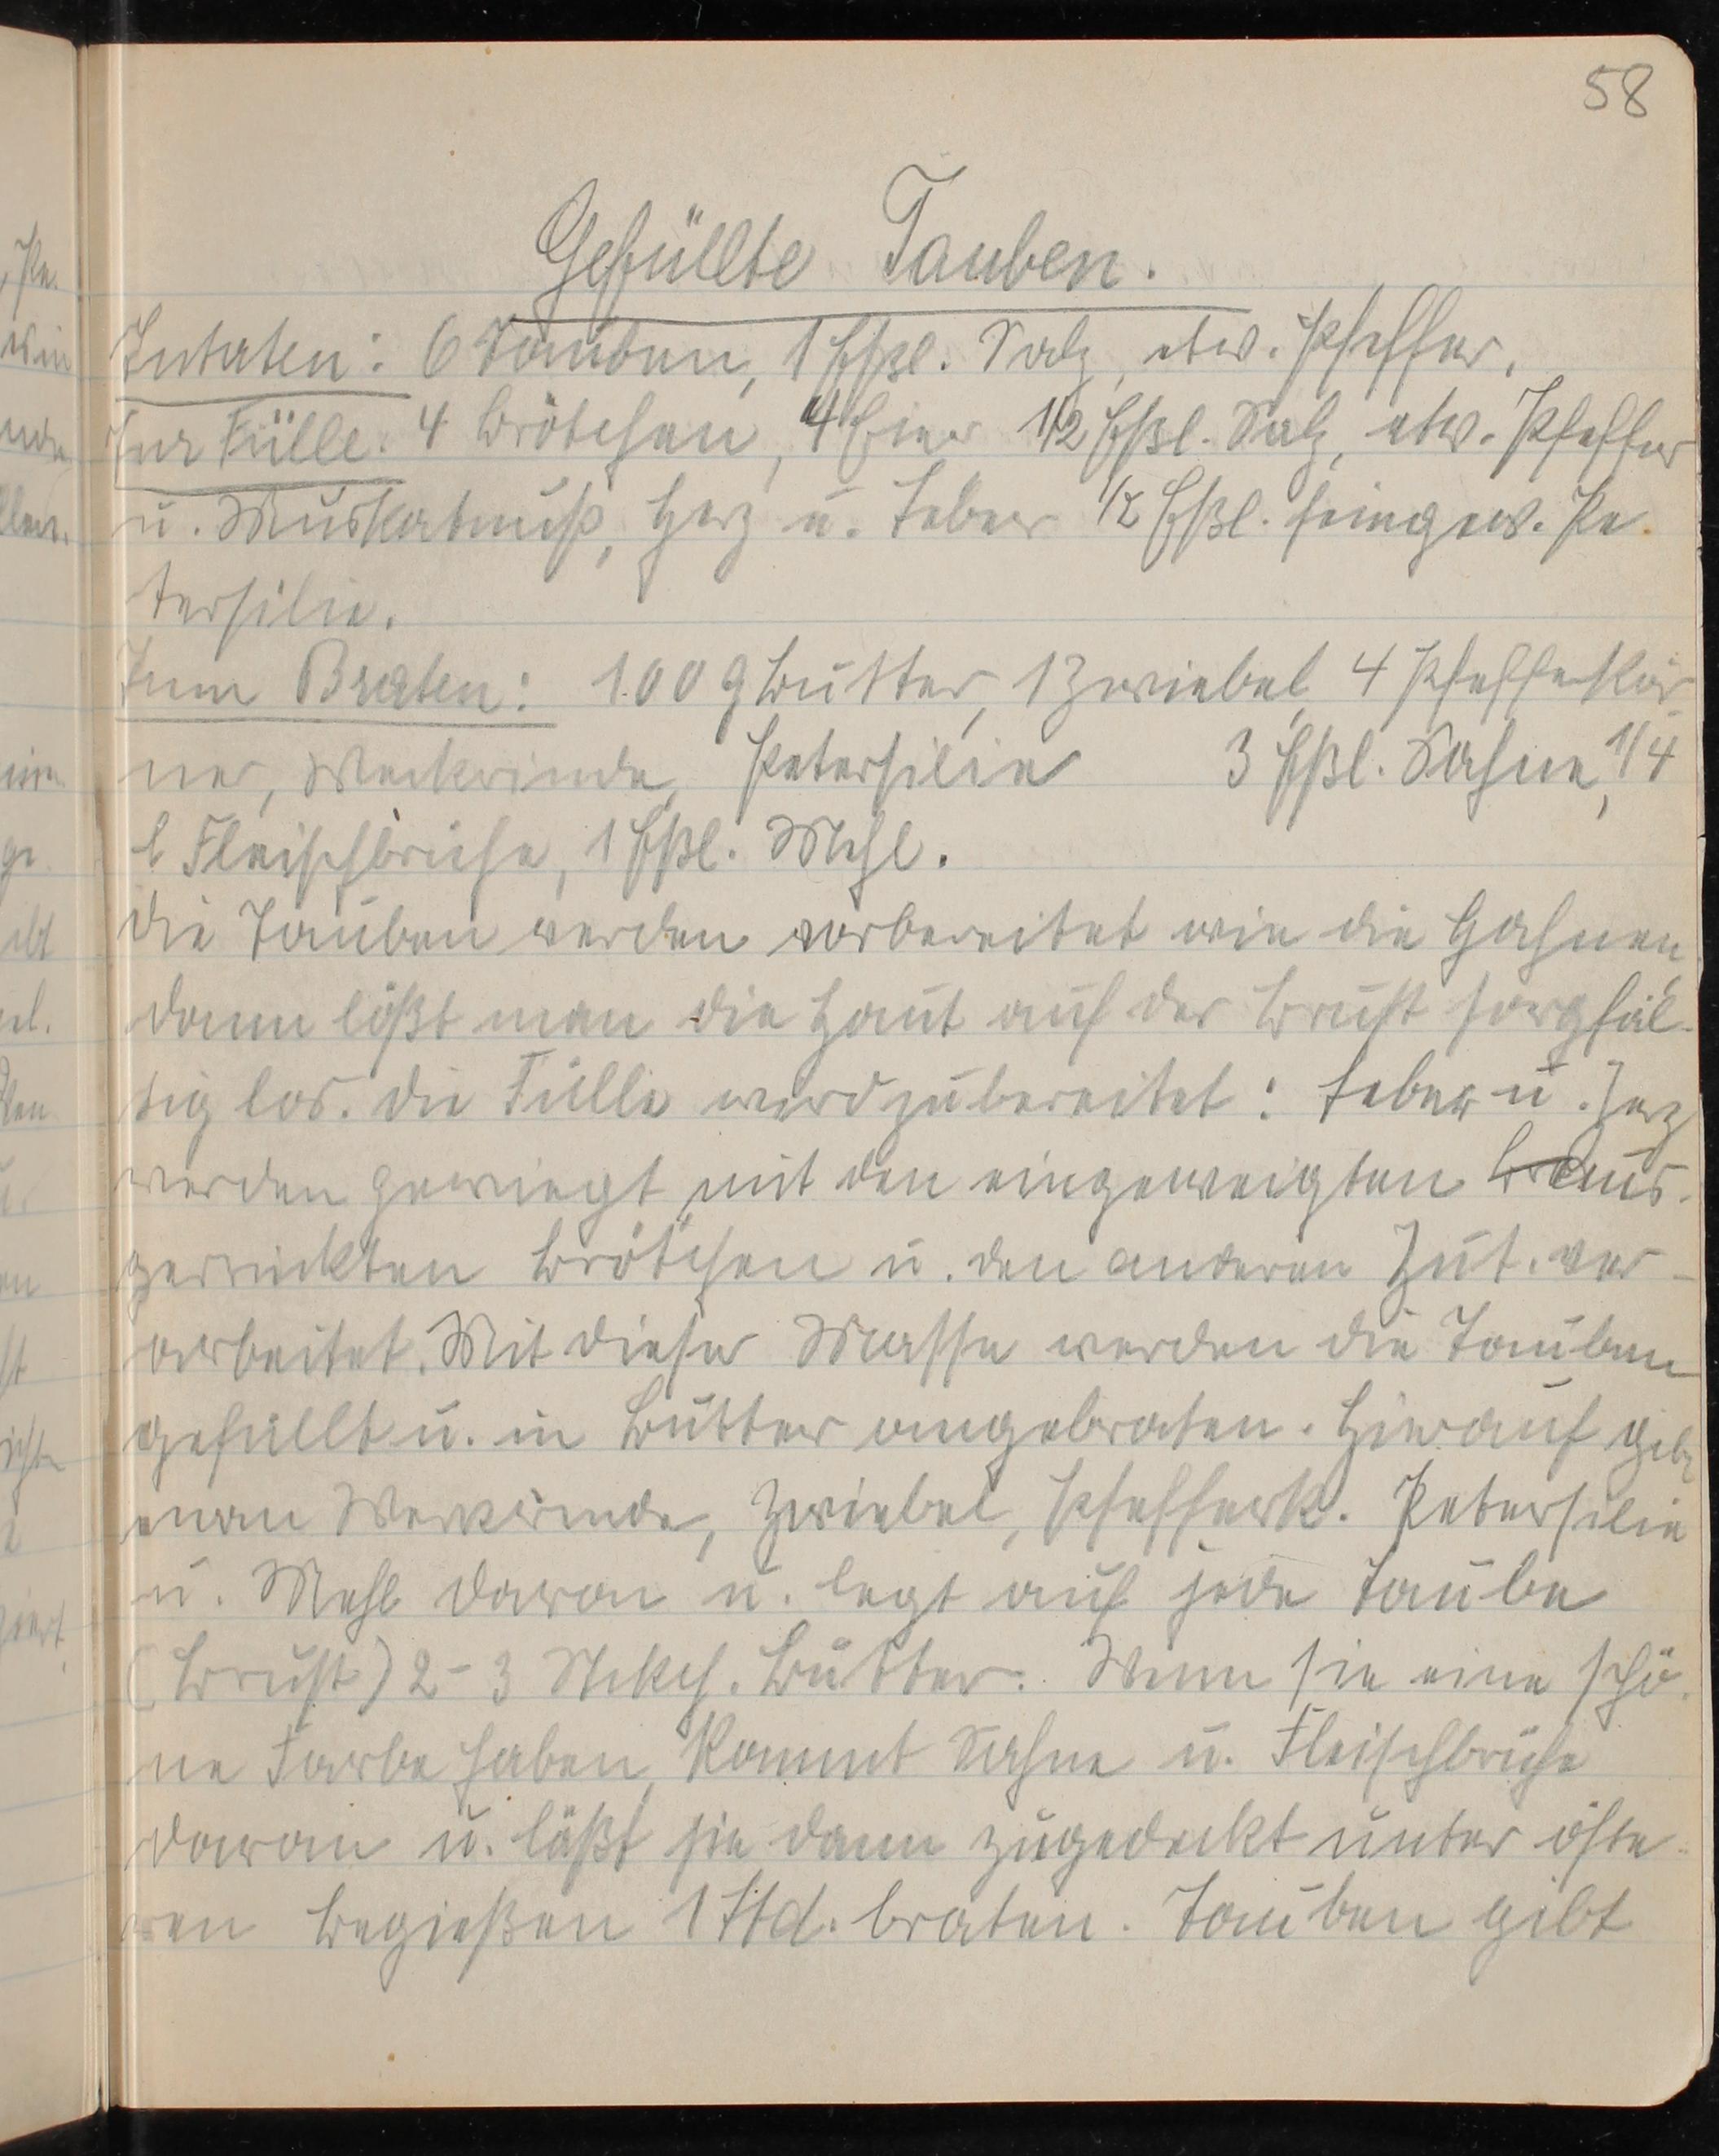 58
Gefüllte Tauben.
Zutaten: 6 Tauben, 1 Eßl. Salz, etw. Pfeffer.
Zur Fülle: 4 Brötchen, 4 Eier 1/2 Eßl. Salz, etw. Pfeffer
u. Muskatnuß, Herz u. Leber 1/2 Eßl. feingew. Pe-
tersilie.
Zum Braten: 100 g Butter, 1 Zwiebel, 4 Pfefferkör-
ner, Weckrinde, Petersilie 3 Eßl. Sahne, 1/4
l Fleischbrühe, 1 Eßl. Mehl.
Die Tauben werden vorbereitet wie die Hahnen,
dann lößt man die Haut auf der Brust sorgfäl-
tig los. Die Fülle wird zubereitet: Leber u. Herz
werden gewiegt, mit den eingeweigten aus-
gedrückten Brötchen u. den anderen Zut. ver-
arbeitet. Mit dieser Masse werden die Tauben
gefüllt u. in Butter angebraten. Hierauf gibt
man Weckrinde, Zwiebel, Pfefferk. Petersilie
u. Mehl daran u. legt auf jede Taube
(Brust) 2-3 Stckch. Butter. Wenn sie eine schö-
ne Farbe haben, kommt Sahne u. Fleischbrühe
daran u. läßt sie dann zugedeckt unter öfte-
ren Begießen 1 Std. braten. Tauben gibt